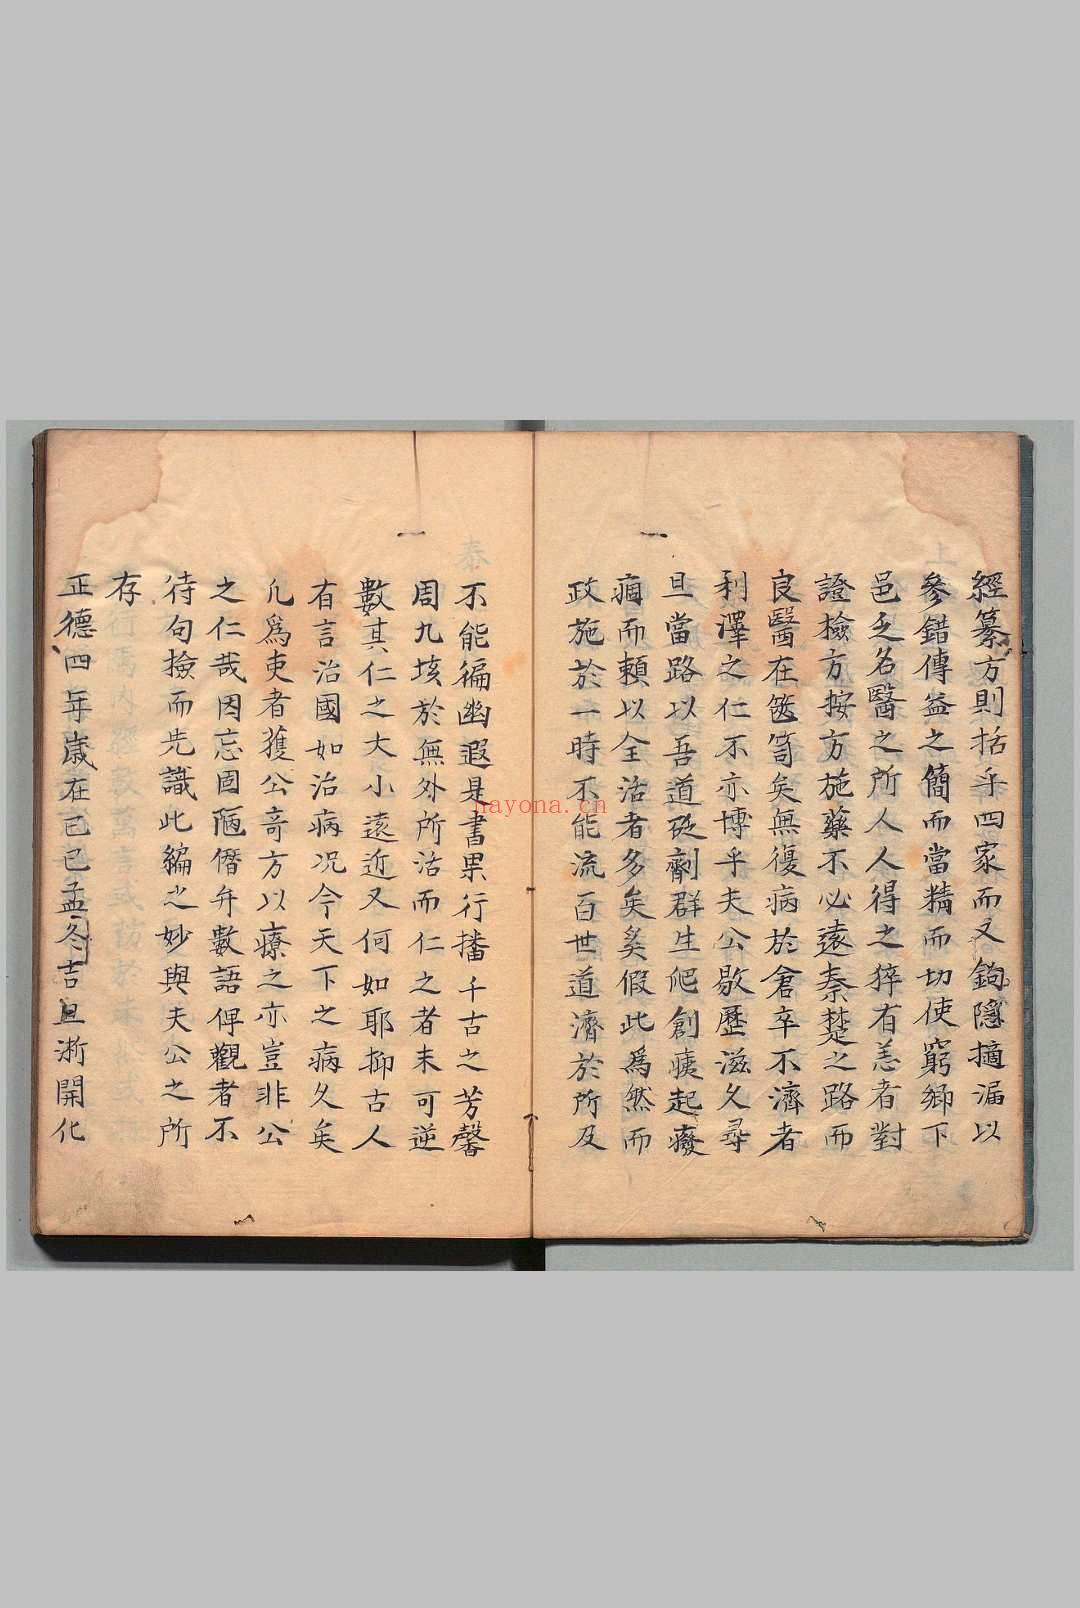 經纂方則括乎四家而又鉤隱摘漏以
參錯傳益之簡而當精而切使窮鄉下
邑乏名醫之所人人得之猝有恙者對
證檢方按方施藥不必遠秦楚之路而
良醫在篋笥矣無復病於倉卒不濟者
利澤之仁不亦博乎夫公敭歷滋久尋
旦當路以吾道砭劑群生爬創痍起癈
痼而賴以全活者多矣奚假此爲然而
政施於一時不能流百世道濟於所及
不能徧幽遐是書果行播千古之芳馨
周九垓於無外所活而仁之者未可逆
數其仁之大小遠近又何如耶抑古人
有言治國如治病况今天下之病久矣
凡爲吏者獲公竒方以療之亦豈非公
之仁哉因忘固陋僭弁數語俾觀者不
待句撿而先識此編之妙與夫公之所
存
正德四年歲在己巳孟冬吉旦浙開化
泰
上
nayona.cn